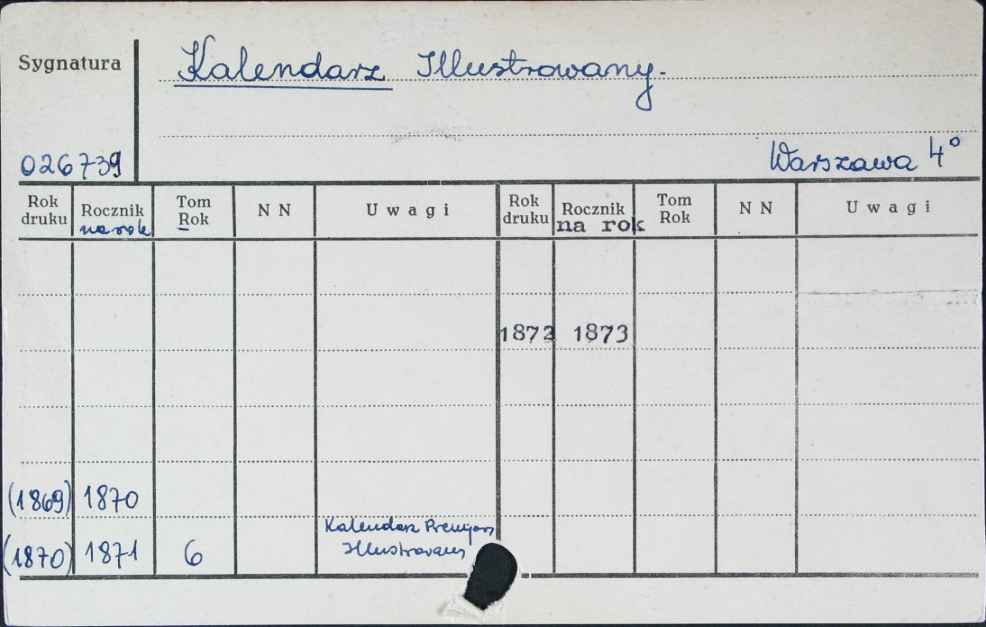 Sygnatura
Kalendarz Illustrowany.
026739
Warszawa 4°
Rok druku Rocznik na rok Tom Rok N N Uwagi Rok druku Rocznik na rok Tom Rok N N Uwagi
1872 1873
(1869) 1870
(1870) 1871 6 Kalendarz
Illustrowany